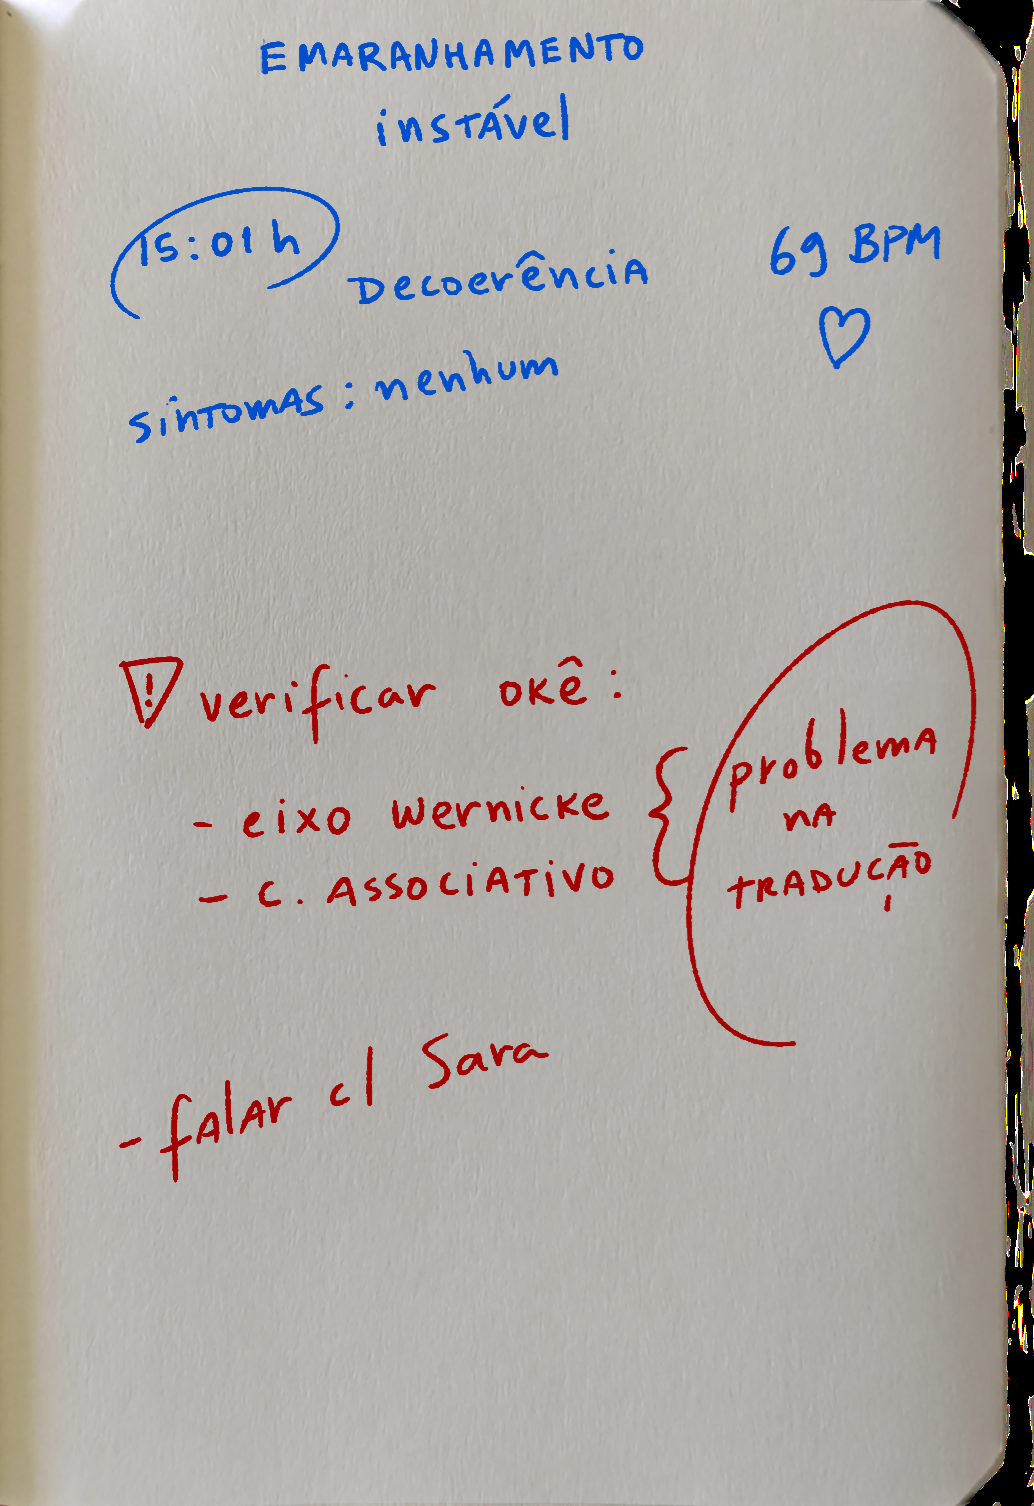 EMARANHAMENTO
instÁvel
15:01 h
69 BPM
Decoerência
síntomAS: nenhum
! verificar okê:
- eixo Wernicke
- C. ASSOCiATiVO
problemA
nA
tRADUÇÃO
- fAlAr c/ Sara